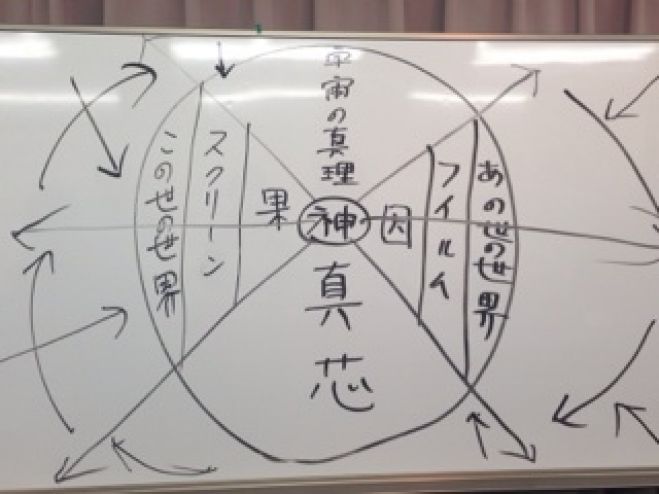 宇宙の真理
あの世の世界
フイルム
因
神
果
スクリーン
この世の世界
真芯